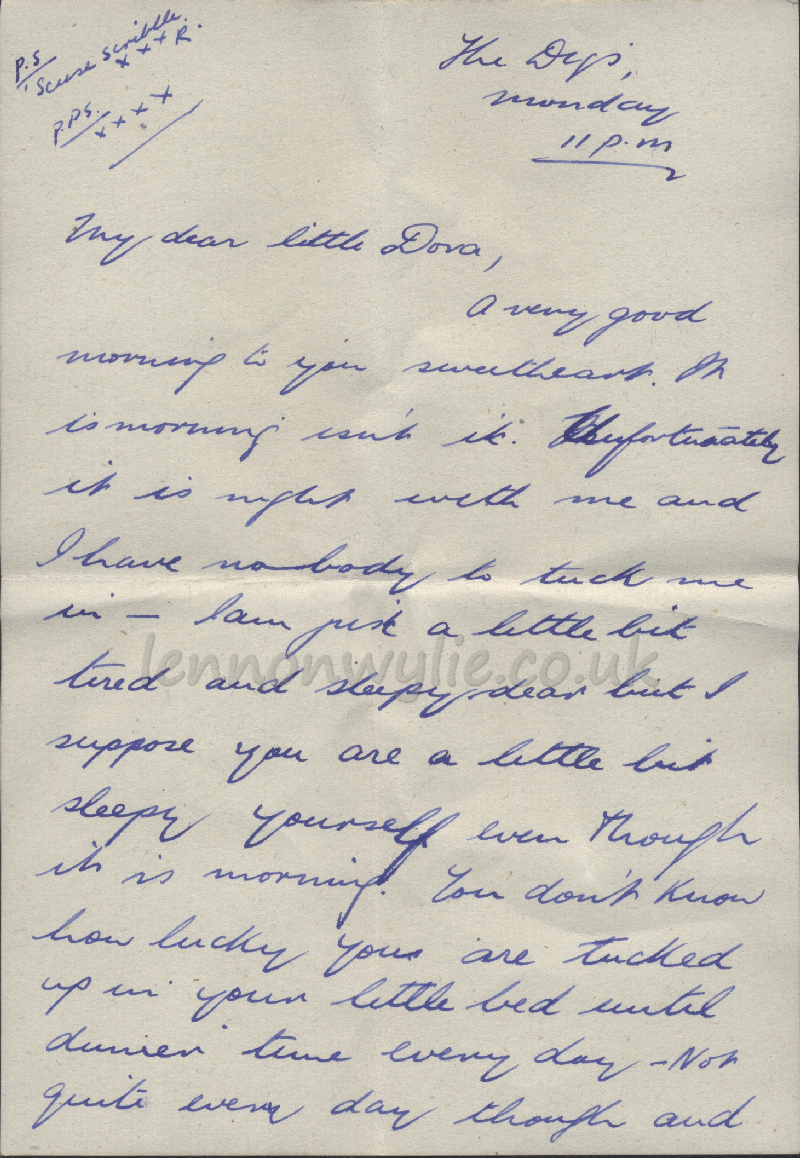 P.S
'Scuse scribble.
x x x R.
P.P.S.
x x x x
The Digs,
Monday
11 p.m
My dear little Dora,
A very good
morning to you sweetheart. It
is morning isn't it. Unfortunately
it is night with me and
I have no body to tuck me
in — I am just a little bit
lennonwylie.co.uk
tired and sleepy dear but I
suppose you are a little bit
sleepy yourself even though
it is morning. You don't know
how lucky you are tucked
up in your little bed until
dinner time every day - Not
quite every day though and